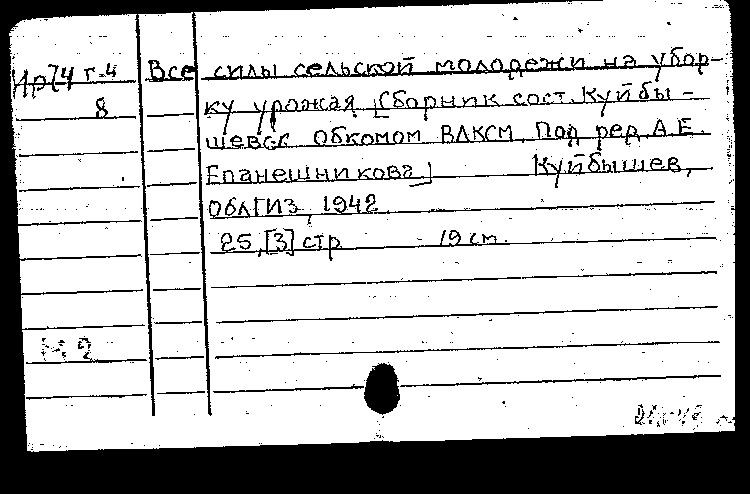 Ир74 г-4 Все силы сельской молодежи на убор-
8 ку урожая [Сборник сост. Куйбы-
шевск обкомом ВЛКСМ. Под ред. А.Е.
Епанешникова] Куйбышев,
ОблГИЗ, 1942
25,[3] стр 19 см.